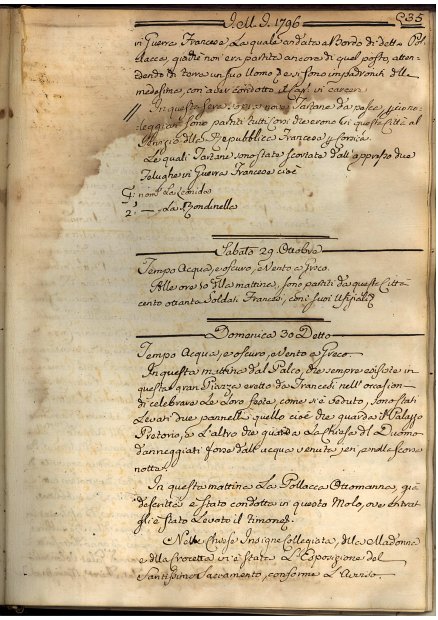 J. M. J. 1796
235
in Guerra Francese La quale andata al Bordo di dett.a Pol
lacca, quale non era partita ancora di quel posto, atten
dendo di torre un suo Uomo, e si sono impadroniti della
medesima, con aver condotto il Cap. in carcere
In questa sera sopra nove Tartane da pesce, sono
partiti tutti Corsi che erono in questa Città al
della Repubblica Francese Corsica.
Le quali Tartane sono state scortate dall'appresso due
Feluche in Guerra Francese cioè
1: nom.a La Leonida
2: — La Rondinella
Sabato 29 Ottobre
Tempo Acqua, e oscuro, e Vento a Greco.
Alle ore 10 della mattina, sono partiti da questa Città
cento ottanta Soldati Francesi, con i suoi Ufiziali
Domenica 30 Detto
Tempo Acqua, e oscuro, e Vento a Greco.
In questa mattina dal Palco, che sempre esisteva in
questa gran Piazza eretto da Francesi nell'occasion
di celebrare Le Loro feste, come si è veduto, sono stati
Levati due pannelli quello cioè che guarda il Palazzo
Pretorio, e L'altro che guarda La Chiesa del Duomo
danneggiati forse dall'acqua venuta jeri, e nella scorsa
notte.
In questa mattina La Pollacca Ottomanna, già
descritta è stato condotta in questo Molo, ove entrat
gli è stato Levato il timone.
Nelle Chiese Insigne Collegiata, della Madonna
e della Crocetta vi è stata L'Esposizione del
Santissimo Sacramento, conforme L'Avviso.